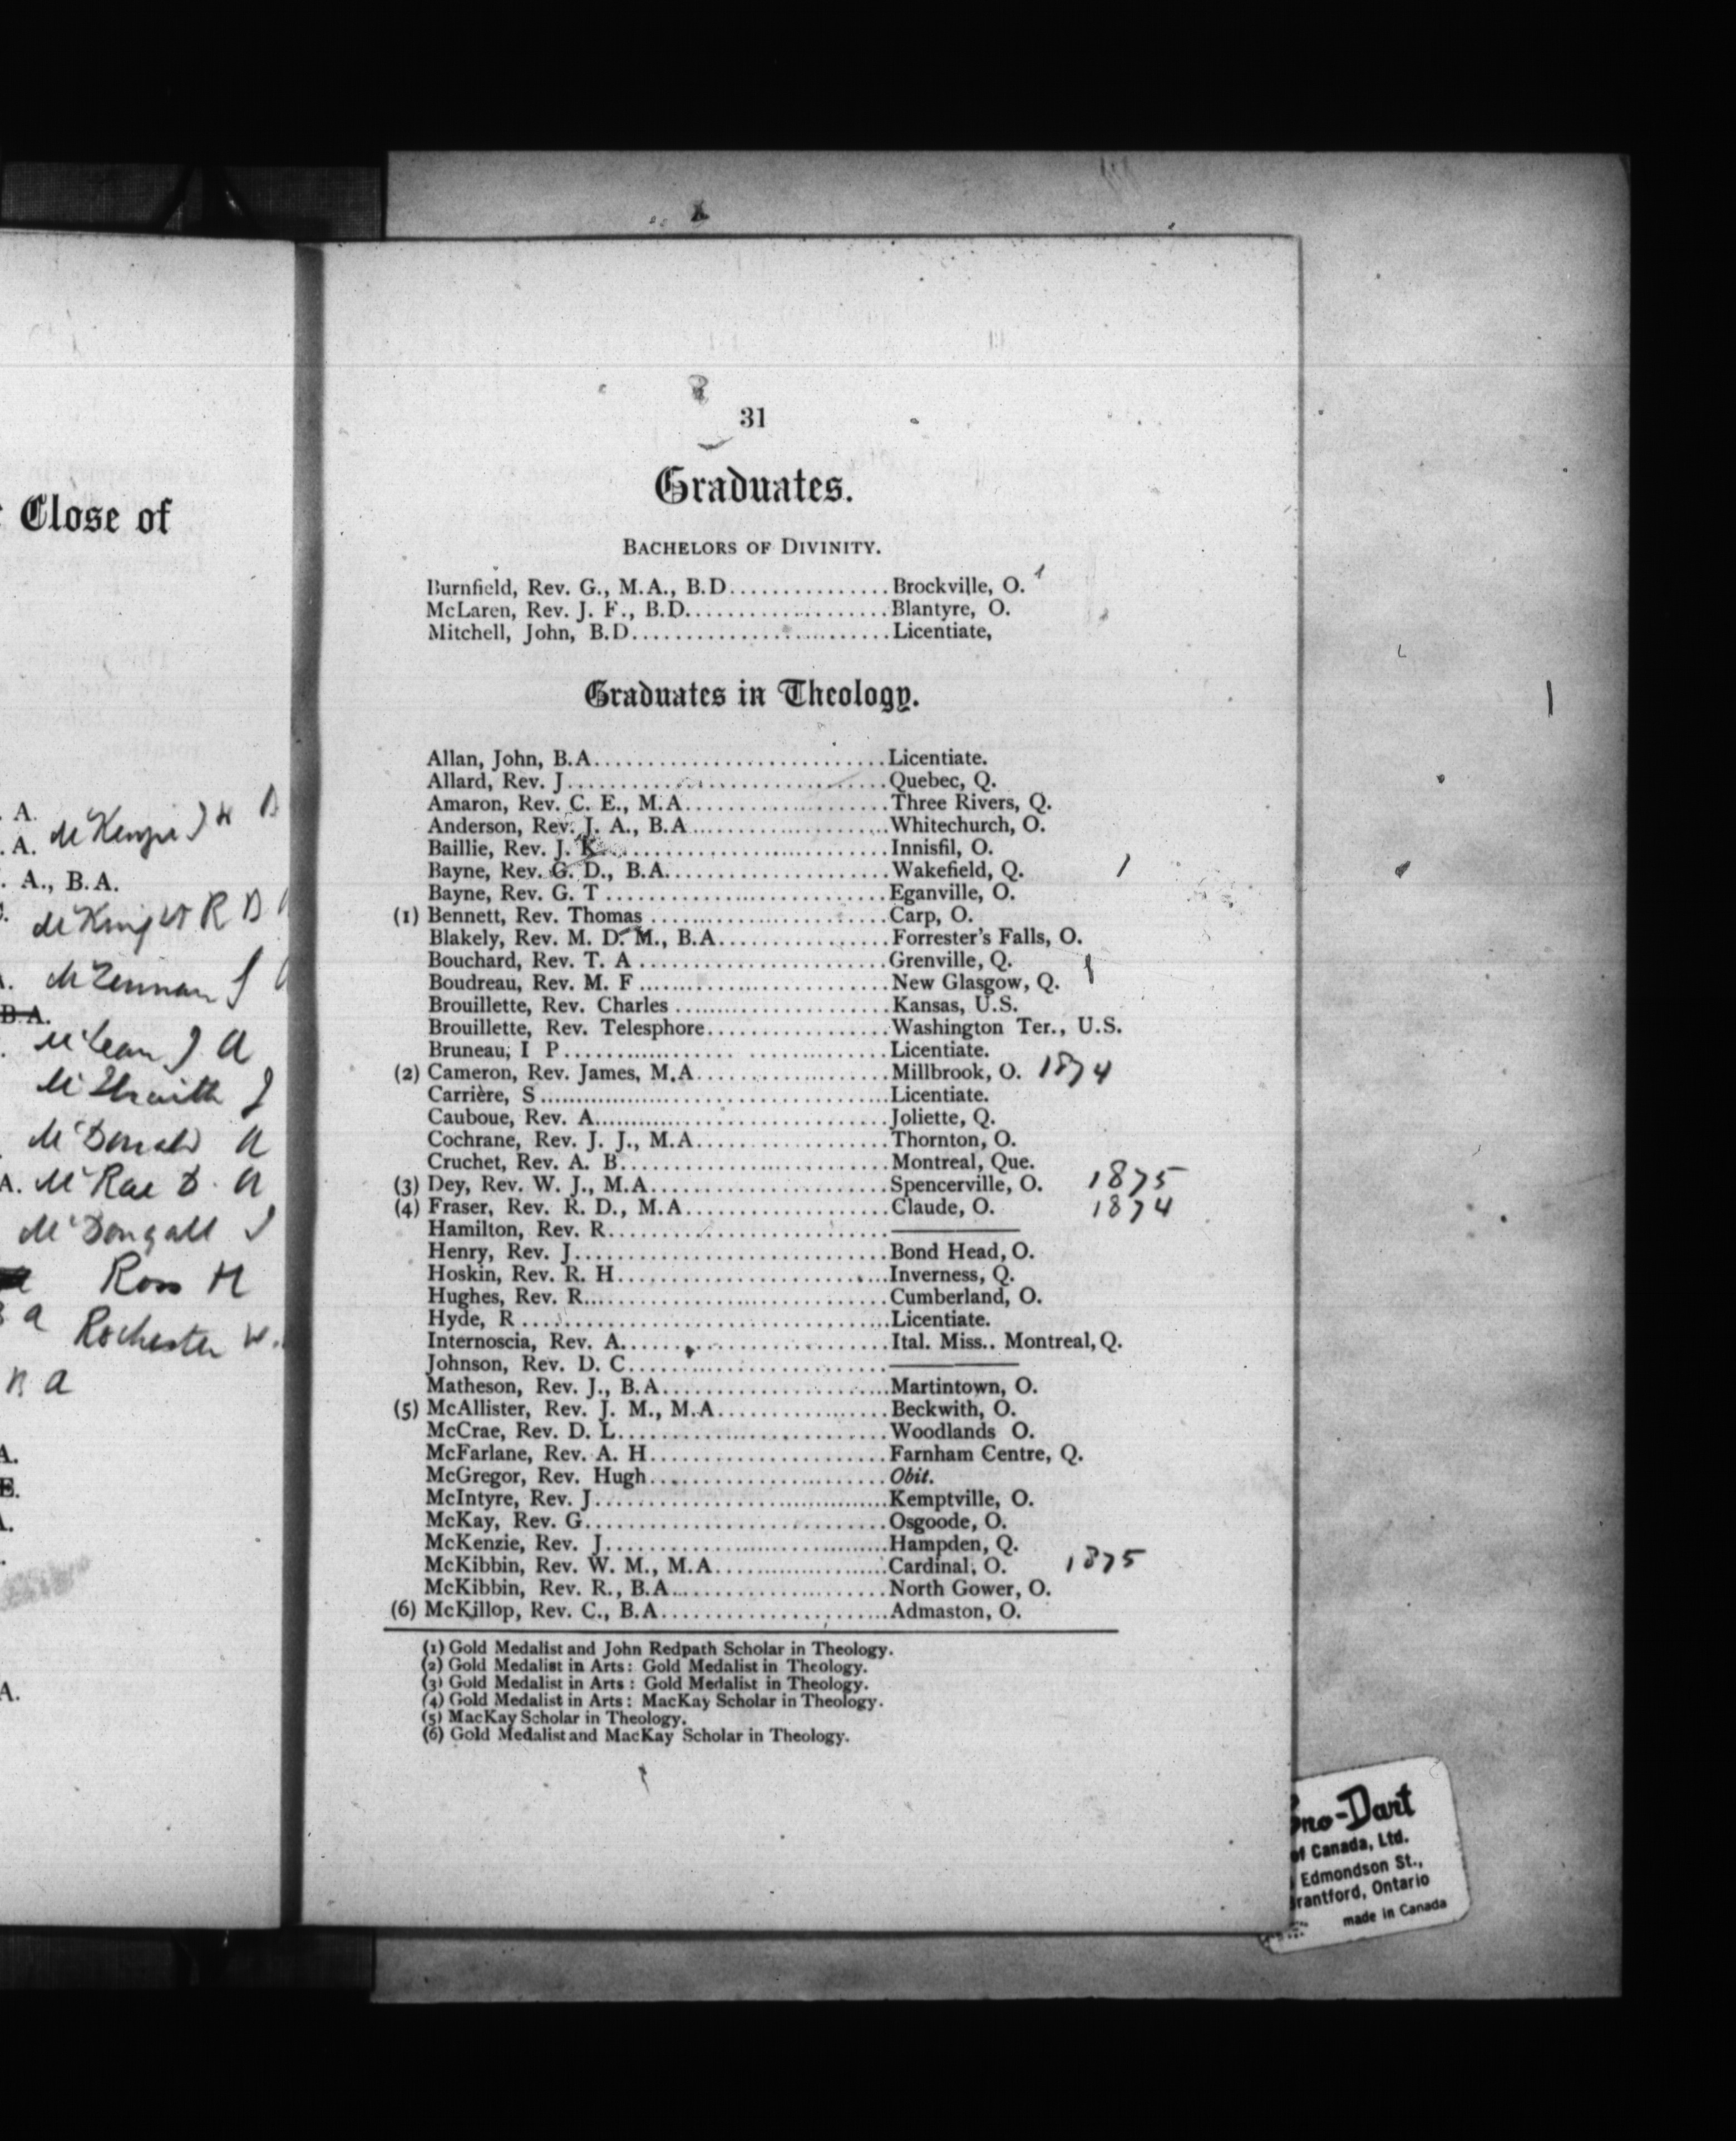 Close of
A.
A. McKenzie J W B
A., B.A.
McKnight R D
McLennan J
B.A.
McLean J A
McIlraith J
McDonald A
A. McRae D. A
McDougall J
Ross H
a Rochester W.
B A
A.
E.
A.
A.
31
Graduates.
BACHELORS OF DIVINITY.
Burnfield, Rev. G., M.A., B.D...............Brockville, O.
McLaren, Rev. J. F., B.D....................Blantyre, O.
Mitchell, John, B.D.........................Licentiate,
Graduates in Theology.
Allan, John, B.A............................Licentiate.
Allard, Rev. J..............................Quebec, Q.
Amaron, Rev. C. E., M.A.....................Three Rivers, Q.
Anderson, Rev. J. A., B.A...................Whitechurch, O.
Baillie, Rev. J. K..........................Innisfil, O.
Bayne, Rev. G. D., B.A......................Wakefield, Q.
Bayne, Rev. G. T............................Eganville, O.
(1) Bennett, Rev. Thomas........................Carp, O.
Blakely, Rev. M. D. M., B.A.................Forrester's Falls, O.
Bouchard, Rev. T. A.........................Grenville, Q.
Boudreau, Rev. M. F.........................New Glasgow, Q.
Brouillette, Rev. Charles...................Kansas, U.S.
Brouillette, Rev. Telesphore................Washington Ter., U.S.
Bruneau, I P................................Licentiate.
(2) Cameron, Rev. James, M.A....................Millbrook, O. 1874
Carrière, S.................................Licentiate.
Cauboue, Rev. A.............................Joliette, Q.
Cochrane, Rev. J. J., M.A...................Thornton, O.
Cruchet, Rev. A. B..........................Montreal, Que.
(3) Dey, Rev. W. J., M.A........................Spencerville, O. 1875
(4) Fraser, Rev. R. D., M.A.....................Claude, O. 1874
Hamilton, Rev. R............................————
Henry, Rev. J...............................Bond Head, O.
Hoskin, Rev. R. H...........................Inverness, Q.
Hughes, Rev. R..............................Cumberland, O.
Hyde, R.....................................Licentiate.
Internoscia, Rev. A.........................Ital. Miss.. Montreal, Q.
Johnson, Rev. D. C..........................————
Matheson, Rev. J., B.A......................Martintown, O.
(5) McAllister, Rev. J. M., M.A.................Beckwith, O.
McCrae, Rev. D. L...........................Woodlands O.
McFarlane, Rev. A. H........................Farnham Centre, Q.
McGregor, Rev. Hugh.........................Obit.
McIntyre, Rev. J............................Kemptville, O.
McKay, Rev. G...............................Osgoode, O.
McKenzie, Rev. J............................Hampden, Q.
McKibbin, Rev. W. M., M.A...................Cardinal, O. 1875
McKibbin, Rev. R., B.A......................North Gower, O.
(6) McKillop, Rev. C., B.A......................Admaston, O.
(1) Gold Medalist and John Redpath Scholar in Theology.
(2) Gold Medalist in Arts: Gold Medalist in Theology.
(3) Gold Medalist in Arts: Gold Medalist in Theology.
(4) Gold Medalist in Arts: MacKay Scholar in Theology.
(5) MacKay Scholar in Theology.
(6) Gold Medalist and MacKay Scholar in Theology.
ro-Dart
of Canada, Ltd.
Edmondson St.,
rantford, Ontario
made in Canada